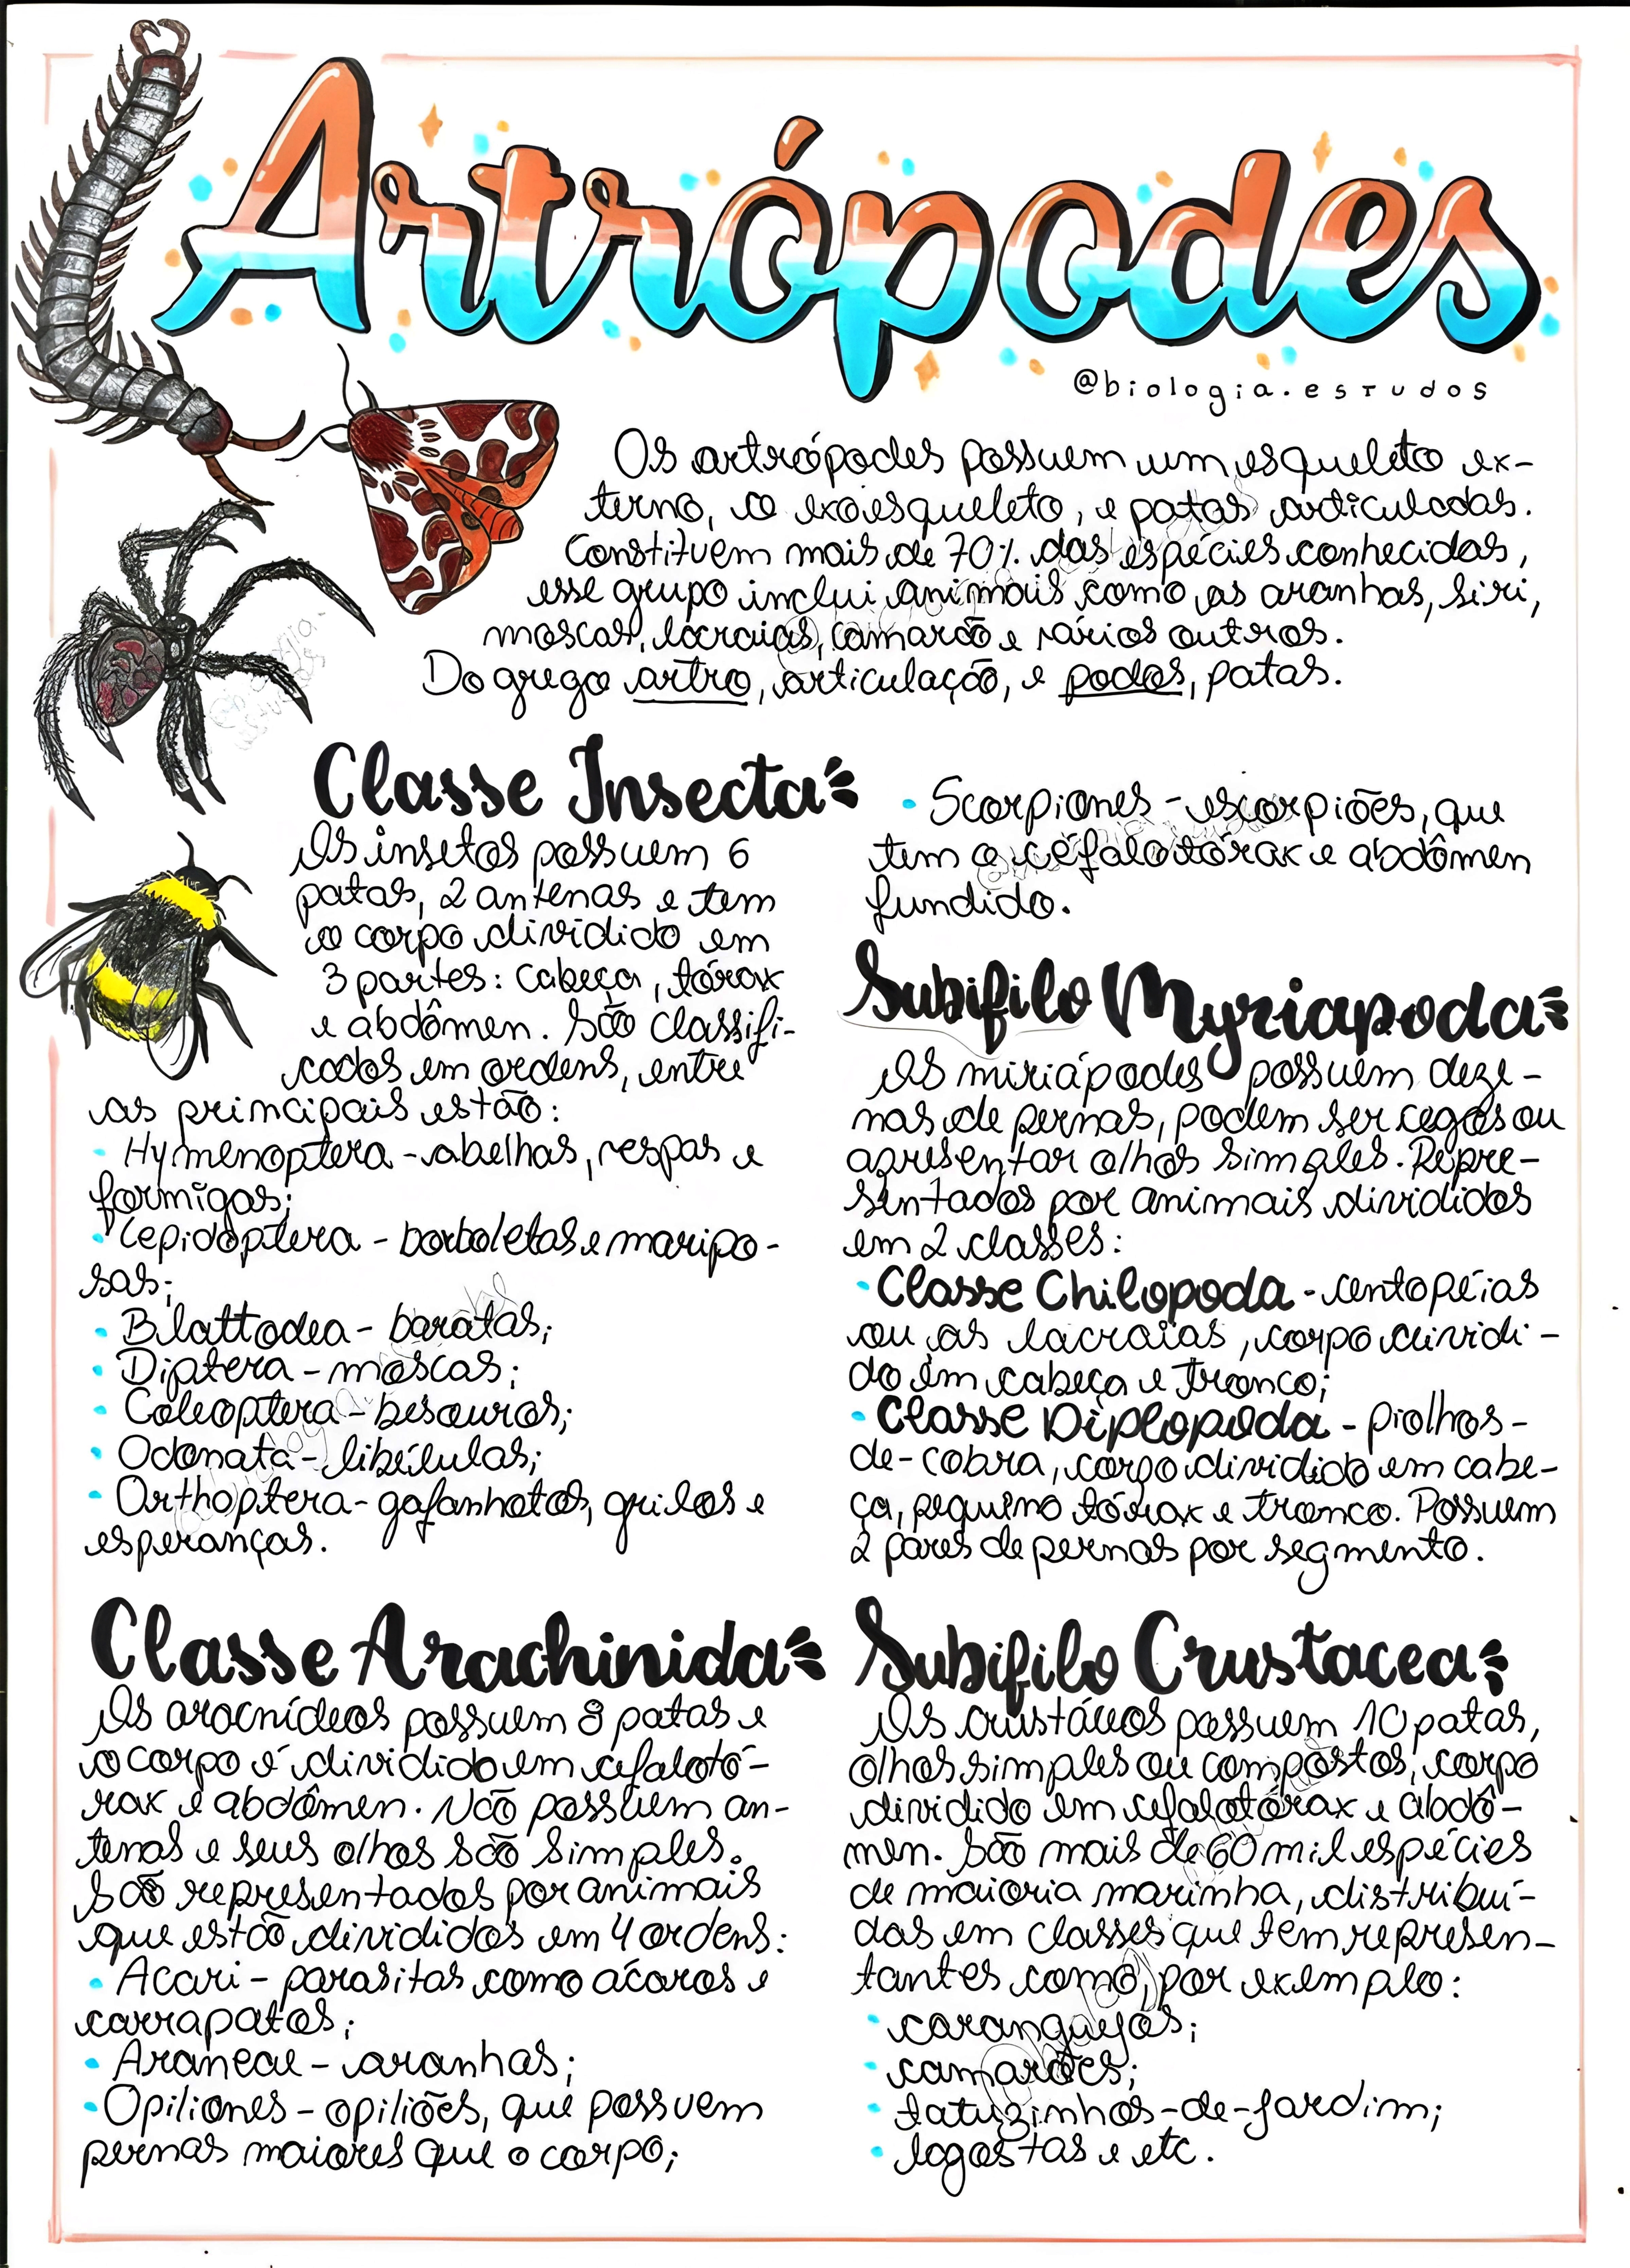 Artrópodes
@biologia.estudos
Os artrópodes possuem um esqueleto ex-
terno, o exoesqueleto, e patas articuladas.
Constituem mais de 70% das espécies conhecidas,
esse grupo inclui animais como as aranhas, siri,
moscas, lacraias, camarão e vários outros.
Do grego artro, articulação, e podos, patas.
Classe Insecta
Os insetos possuem 6
patas, 2 antenas e tem
o corpo dividido em
3 partes: cabeça, tórax
e abdômen. São classifi-
cados em ordens, entre
as principais estão:
• Hymenoptera - abelhas, vespas e
formigas;
• Lepidoptera - borboletas e maripo-
sas;
• Blattodea - baratas;
• Diptera - moscas;
• Coleoptera - besouros;
• Odonata - libélulas;
• Orthoptera - gafanhotos, grilos e
esperanças.
Classe Arachinida
Os aracnídeos possuem 8 patas e
o corpo é dividido em cefalotó-
rax e abdômen. Não possuem an-
tenas e seus olhos são simples.
São representados por animais
que estão divididos em 4 ordens:
• Acari - parasitas como ácaros e
carrapatos;
• Araneae - aranhas;
• Opiliones - opiliões, que possuem
pernas maiores que o corpo;
• Scorpiones - escorpiões, que
tem o céfalotórax e abdômen
fundido.
Subifilo Myriapoda
Os miriápodes possuem deze-
nas de pernas, podem ser cegos ou
apresentar olhos simples. Repre-
sentados por animais divididos
em 2 classes:
• Classe Chilopoda - centopéias
ou as lacraias, corpo dividi-
do em cabeça e tronco;
• Classe Diplopoda - piolhos-
de-cobra, corpo dividido em cabe-
ça, pequeno tórax e tronco. Possuem
2 pares de pernas por segmento.
Subifilo Crustacea
Os crustáceos possuem 10 patas,
olhos simples ou compostos, corpo
dividido em cefalotórax e abdô-
men. São mais de 60 mil espécies
de maioria marinha, distribuí-
das em classes que tem represen-
tantes como, por exemplo:
• caranguejos;
• camarões;
• tatuzinhos-de-jardim;
• lagostas e etc.